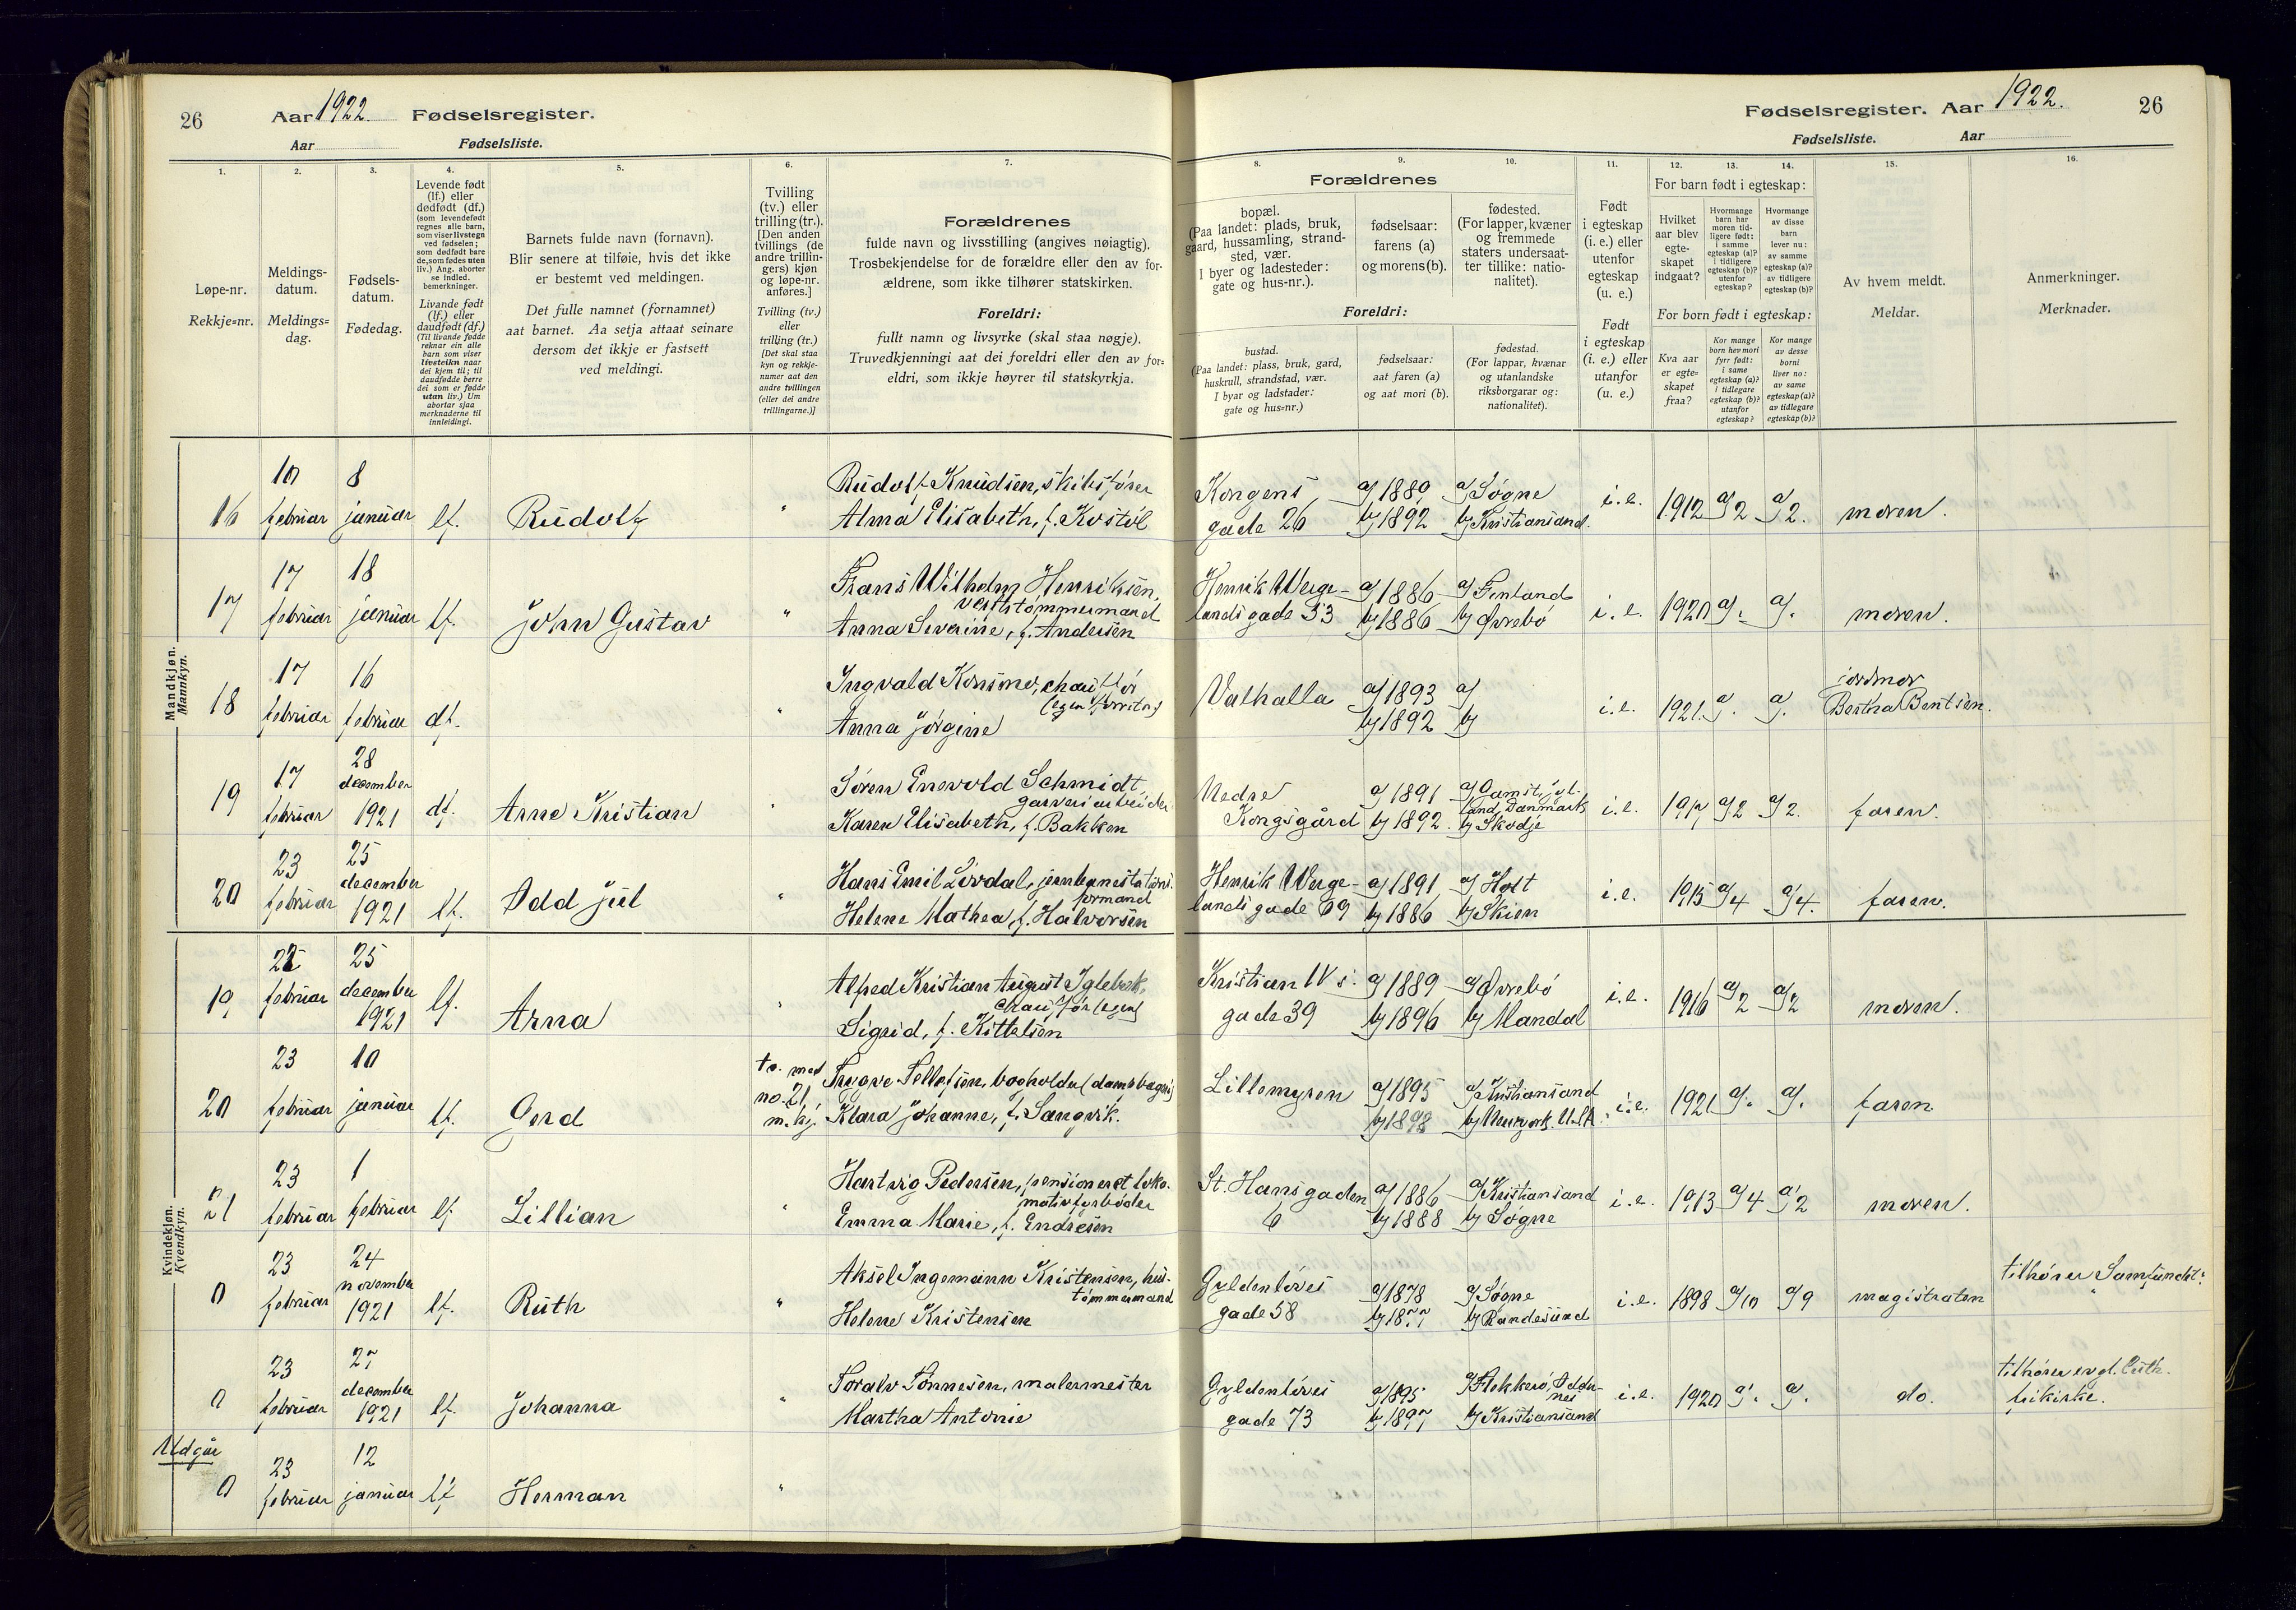 26 Aar 1922. Fødselsregister.
Aar Fødselsliste.
Fødselsregister. Aar 1922. 26
Fødselsliste. Aar
1. 2. 3. 4. 5. 6. 7.
Løpe-nr.
Rekkje=nr.
Meldings-
datum.
Meldings=
dag.
Fødsels-
datum.
Fødedag.
Levende født
(lf.) eller
dødfødt (df.)
(som levendefødt
regnes alle barn,
som viser livstegn
ved fødselen;
som dødfødt bare
de, som fødes uten
liv.) Ang. aborter
se indled.
bemerkninger.
Livande født
(lf.) eller
daudfødt (df.)
(Til livande fødde
reknar ein alle
barn som viser
livsteikn naar
dei kjem til; til
daudfødde berre
dei som er fødde
utan liv.) Um
abortar sjaa
merknaderne til
innleidingi.
Barnets fulde navn (fornavn).
Blir senere at tilføie, hvis det ikke
er bestemt ved meldingen.
Det fulle namnet (fornamnet)
aat barnet. Aa setja attaat seinare
dersom det ikkje er fastsett
ved meldingi.
Tvilling
(tv.) eller
trilling (tr.).
[Den anden
tvillings (de
andre trillin-
gers) kjøn
og løpe-nr.
anføres.]
Tvilling (tv.)
eller
trilling (tr.)
[Det skal staa
kyn og rekkje-
numer aat den
andre tvillingen
(eller dei andre
trillingarne.)]
Forældrenes
fulde navn og livsstilling (angives nøiagtig).
Trosbekjendelse for de forældre eller den av for-
ældrene, som ikke tilhører statskirken.
Foreldri:
fullt namn og livsyrke (skal staa nøgje).
Truvedkjenningi aat dei foreldri eller den av for-
eldri, som ikkje høyrer til statskyrkja.
8. 9. 10. 11. 12. 13. 14. 15. 16.
Forældrenes
bopæl.
(Paa landet: plads, bruk,
gaard, hussamling, strand-
sted, vær.
I byer og ladesteder:
gate og hus-nr.).
fødselsaar:
farens (a)
og morens (b).
fødested.
(For lapper, kvæner
og fremmede
staters undersaat-
ter tillike: natio-
nalitet).
Foreldri:
bustad.
(Paa landet: plass, bruk, gard,
huskrull, strandstad, vær.
I byar og ladstader:
gate og hus=nr.)
fødselsaar:
aat faren (a)
og aat mori (b).
fødestad.
(For lappar, kvænar
og utanlandske
riksborgarar og:
nationalitet).
Født
i egteskap
(i. e.) eller
utenfor
egteskap
(u. e.)
Født
i egteskap
(i. e.) eller
utanfor
(u. e.)
For barn født i egteskap:
Hvilket
aar blev
egte-
skapet
indgaat?
Hvormange
barn har
moren tid-
ligere født:
i samme
egteskap (a)?
i tidligere
egteskap (b)?
utenfor
egteskap?
Hvormange
av disse
barn
lever nu:
av samme
egteskap (a)?
av tidligere
egteskap (b)?
For born født i egteskap:
Kva aar
er egte=
skapet
fraa?
Kor mange
born hev mori
fyrr født:
i same
egteskap (a)?
i tidlegare
egteskap (b)?
utanfor
egteskap?
Kor mange
av desse
borni
liver no:
av same
egteskap (a)?
av tidlegare
egteskap (b)?
Av hvem meldt.
Meldar.
Anmerkninger.
Merknader.
Mandkjøn.
Mannkyn.
16 10 februar 8 januar lf. Rudolf " Rudolf Knudsen, skibsfører
Alma Elisabeth, f. Kostøl
Kongens gade 26 a/ 1889 b/ 1892 a/ Søgne b/ Kristiansand. i.e. 1912 a/ 2 a/ 2. moren.
17 17 februar 18 januar lf. John Gustav " Frans Wilhelm Henriksen,
verftstømmermand
Anna Severine, f. Andersen
Henrik Werge-
lands gade 53 a/ 1886 b/ 1886 a/ Finland b/ Øvrebø i.e. 1920 a/. a/. moren.
18 17 februar 16 februar df. " Ingvald Konsmo, chauffør
(egen forretn)
Anna Jørgine
Valhalla a/ 1893 b/ 1892 a/ b/ i.e. 1921. a/. a/. jordmor
Bertha Bentsen.
19 17 februar 28 december 1921 df. Arne Kristian " Søren Enevold Schmidt,
garveriarbeider
Karen Elisabeth, f. Bakken
Nedre Kongsgård a/ 1891 b/ 1892. a/ Gamst, Jyl-
land, Danmark
b/ Skodje i.e. 1917 a/ 2 a/ 2. faren.
20 23 februar 25 december 1921 lf. Odd Jul " Hans Emil Lövdal, jernbanestations-
formand
Helene Mathea, f. Halvorsen
Henrik Werge-
lands gade 69 a/ 1891 b/ 1886 a/ Holt b/ Skien i.e. 1915 a/ 4 a/ 4. faren.
Kvindekjøn.
Kvendkyn.
19 22 februar 25 december 1921 lf. Arna " Alfred Kristian August Iglebæk,
chauffør (egen)
Sigrid, f. Kittelsen
Kristian IV s.
gade 39 a/ 1889 b/ 1896 a/ Øvrebø b/ Mandal i.e. 1916 a/ 2 a/ 2 moren.
20 23 februar 10 januar lf. Gerd tv. med
no. 21,
m.kj. Trygve Tellefsen, bogholder (dampbageri)
Klara Johanne, f. Sangvik.
Lillemyren a/ 1895 b/ 1898 a/ Kristiansand b/ Newyork. U.S.A. i.e. 1921 a/. a/. faren
21 23 februar 1 februar lf. Lillian " Hartvig Pedersen, pensioneret loko-
motivfyrbøder
Emma Marie, f. Endresen
St. Hansgaden
6 a/ 1886 b/ 1888 a/ Kristiansand b/ Søgne i.e. 1913 a/ 4 a/ 2 moren.
0 23 februar 24 november 1921 lf. Ruth " Aksel Ingemann Kristensen, hus-
tømmermand
Helene Kristensen
Gyldenløves
gade 58 a/ 1878 b/ 1877 a/ Søgne b/ Randesund i.e. 1898 a/ 10 a/ 9 magistraten tilhører Samfundet.
0 23 februar 27 december 1921 lf. Johanna " Toralv Tønnesen, malermester
Martha Antonie
Gyldenløves
gade 73 a/ 1895 b/ 1897 a/ Flekkerø, Odder-
nes
b/ Kristiansand i.e. 1920 a/. a/. do. tilhører evgl. luth.
frikirke.
Udgår
0 23 februar 12 januar lf Herman "